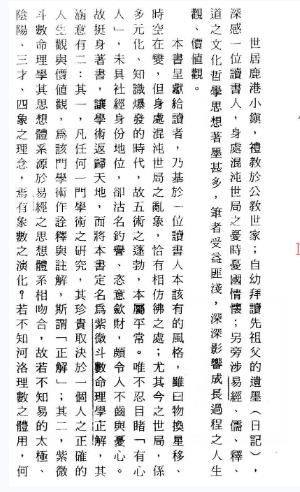 世居鹿港小鎮，禮教於公教世家；自幼拜讀先祖父的遺墨（日記），
深感一位讀書人，身處混沌世局之憂時憂國情懷；另旁涉易經、儒、釋、
道之文化哲學思想著墨甚多，筆者受益匪淺，深深影響成長過程之人生
觀、價值觀。
本書呈獻給讀者，乃基於一位讀書人本該有的風格，雖曰物換星移、
時空在變，但身處混沌世局之亂象，恰有相仿佛之處；尤其今之世局，係
多元化、知識爆發的時代，故五術之蓬勃，本屬平常。唯不忍目睹「有心
人」，未具社經身份地位，卻沽名釣譽、恣意歛財，頗令人不齒與憂心。
故挺身著書，讓學術返歸天地，而將本書定名為紫微斗數命理學正解，其
涵意有二：其一，凡任何一門學術之研究，其珍貴取決於一個人之正確的
人生觀與價值觀，為該門學術作詮釋與註解，斯謂「正解」；其二，紫微
斗數命理學其思想體系源於易經之思想體系相吻合，故若不知易的太極、
陰陽、三才、四象之理念，焉有象數之演化？若不知河洛理數之體用，何